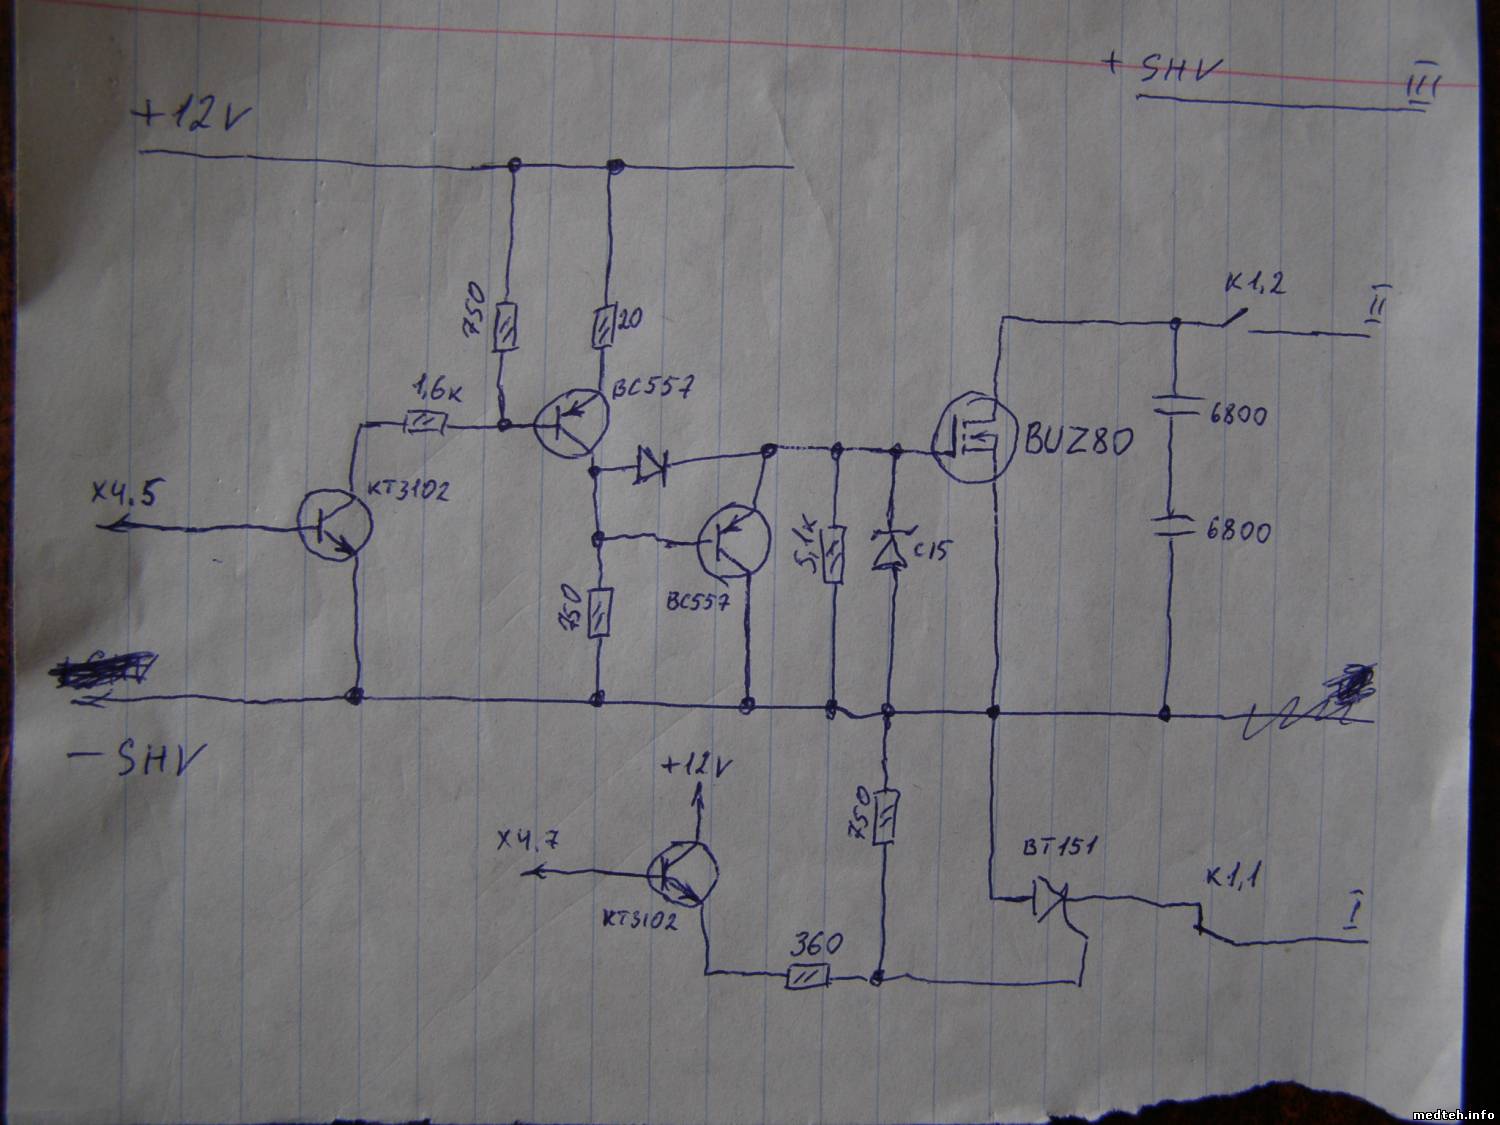 + SHV III
+12V
K1,2 II
750
20
1,6K
BC557
6800
BUZ80
X4.5
KT3102
5,1K
C15
6800
750
BC557
- SHV
+12V
750
X4.7
BT151
K1,1
KT3102
360
I
medteh.info